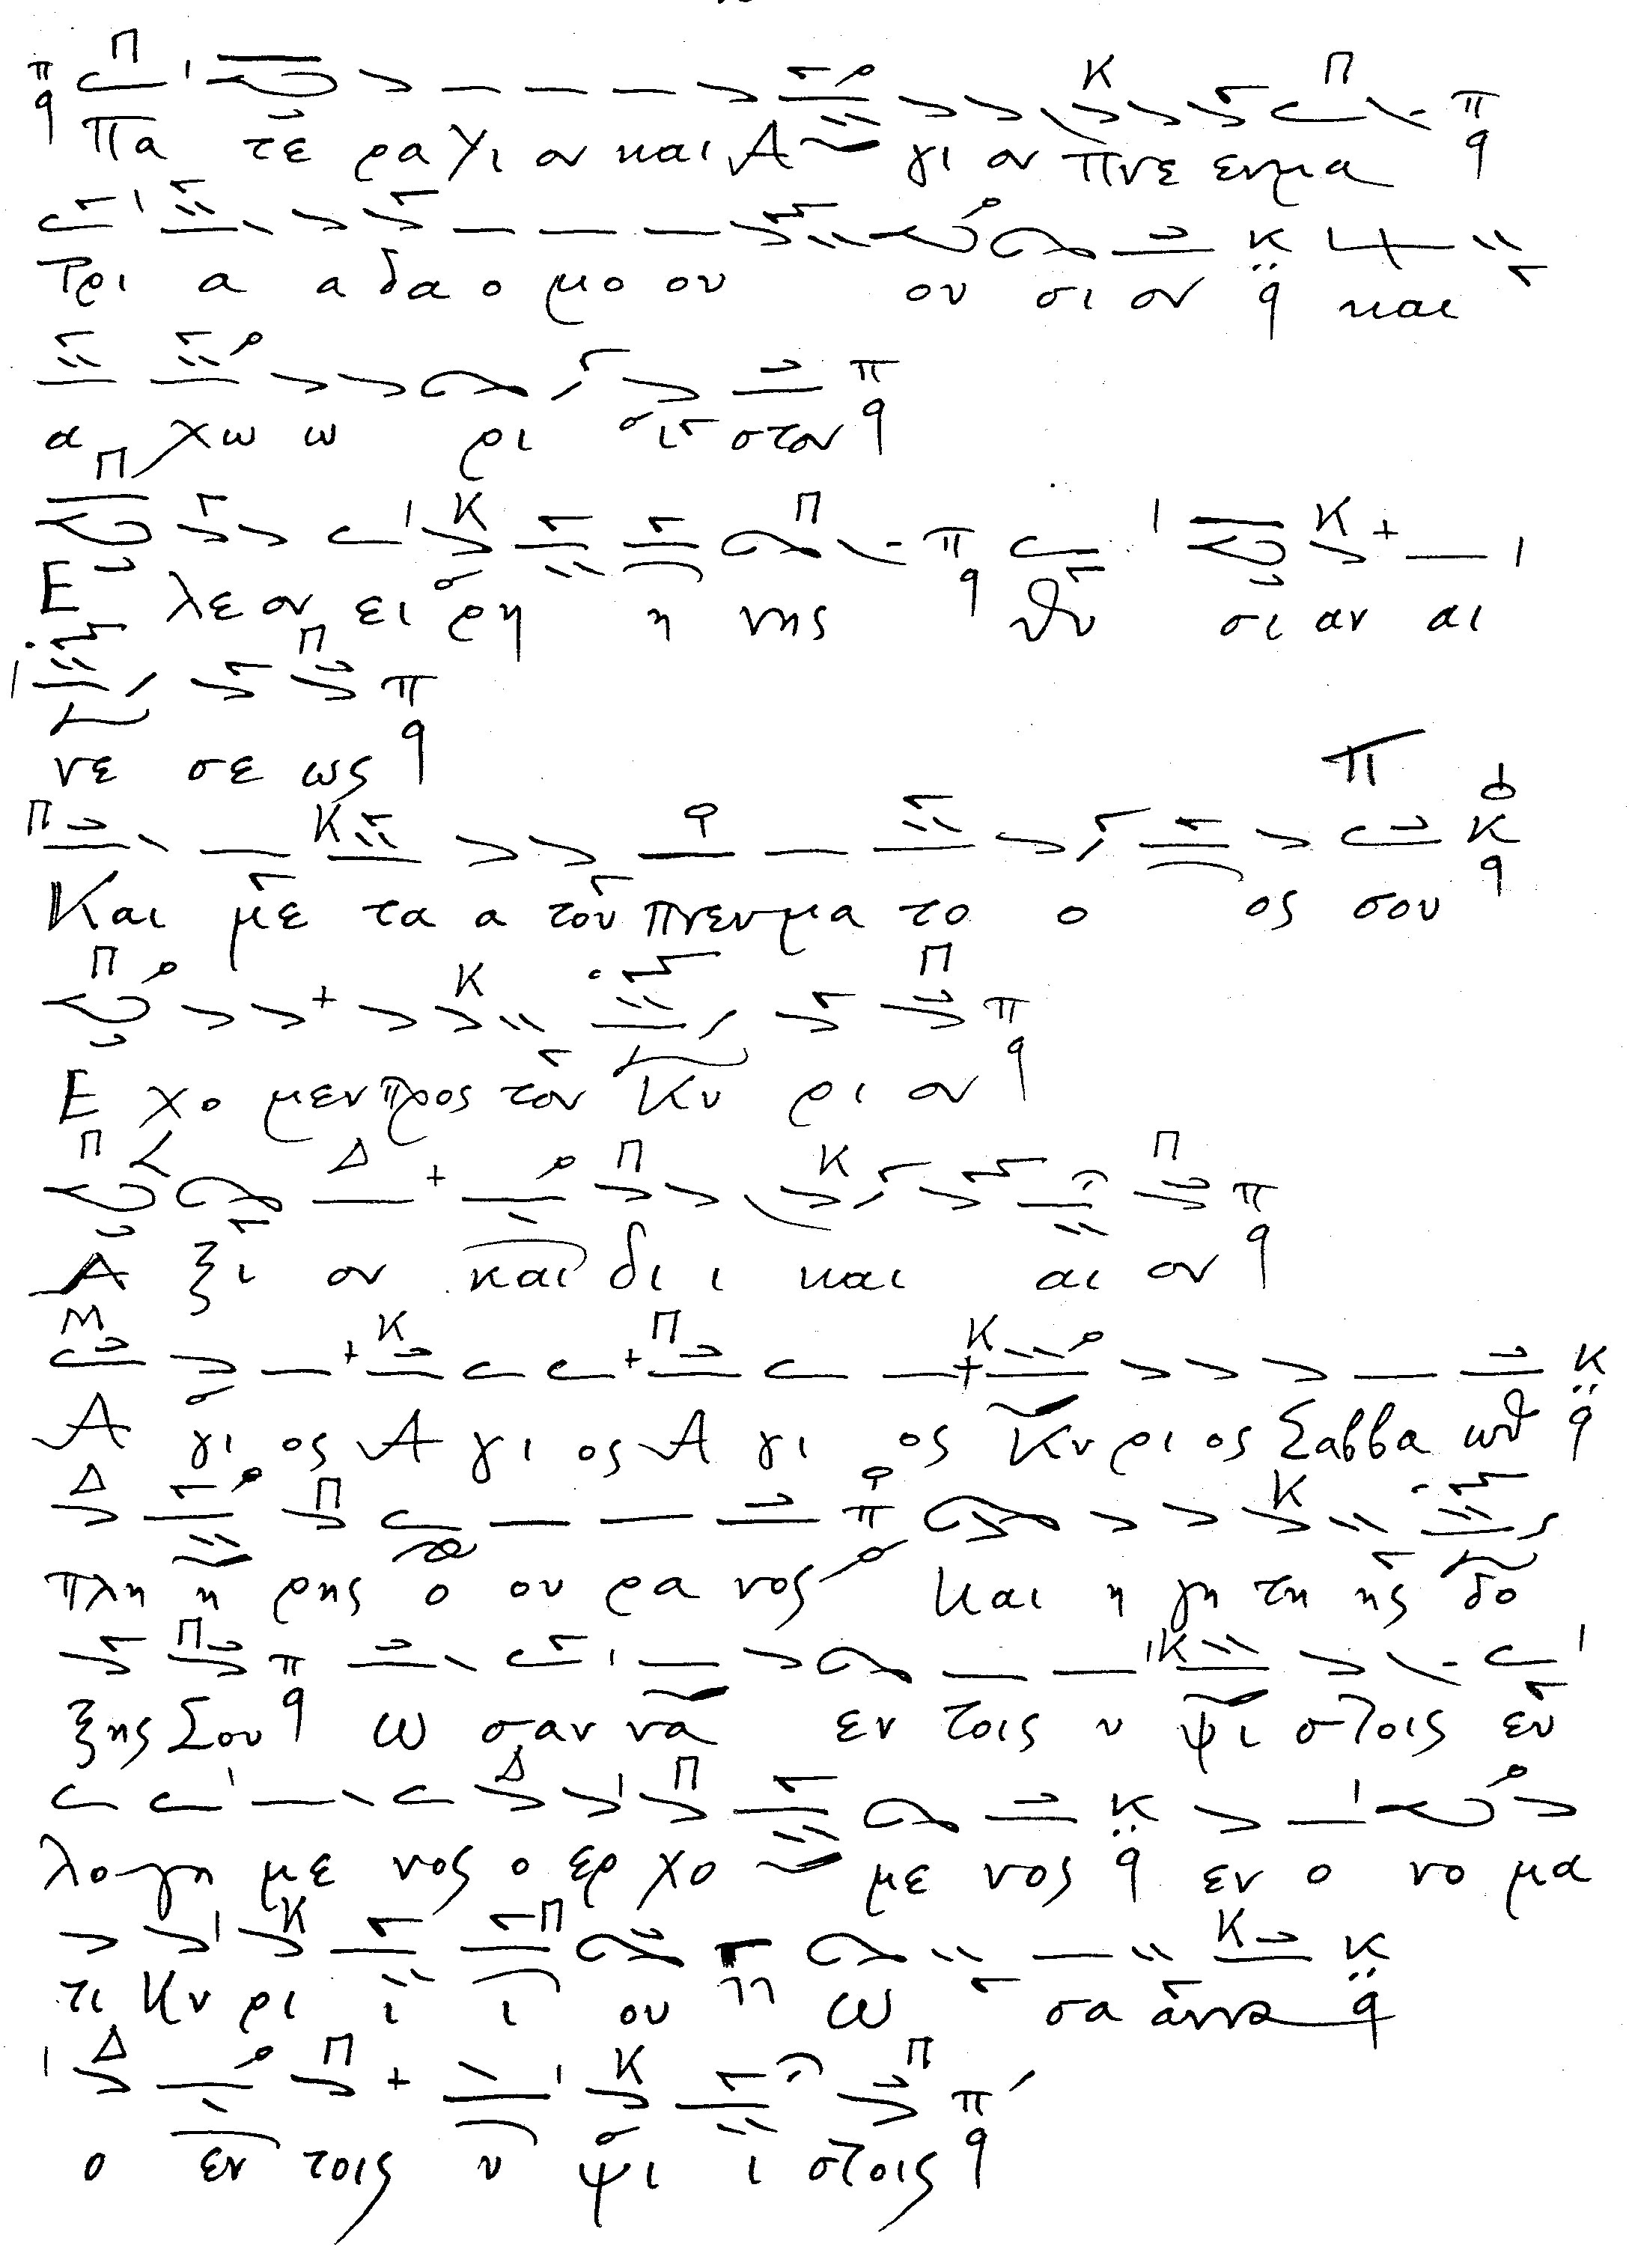 Πα τε ρα Υι ον και Α γι ον Πνε ευμα
Τρι α α δα ο μο ου ου σι ον και
α χω ω ρι ι στον
Ε λε ον ει ρη η νης θυ σι αν αι
νε σε ως
Και με τα α του πνευμα το ο ος σου
Ε χο μεν προς τον Κυ ρι ον
Α ξι ον και δι ι και αι ον
Α γι ος Α γι ος Α γι ος Κυ ρι ος Σαββα ωθ
πλη η ρης ο ου ρα νος και η γη τη ης δο
ξης Σου ω σαν να εν τοις υ ψι στοις ευ
λο γη με νος ο ερ χο με νος εν ο νο μα
τι Κυ ρι ι ι ου ω σα αννα
ο εν τοις υ ψι ι στοις